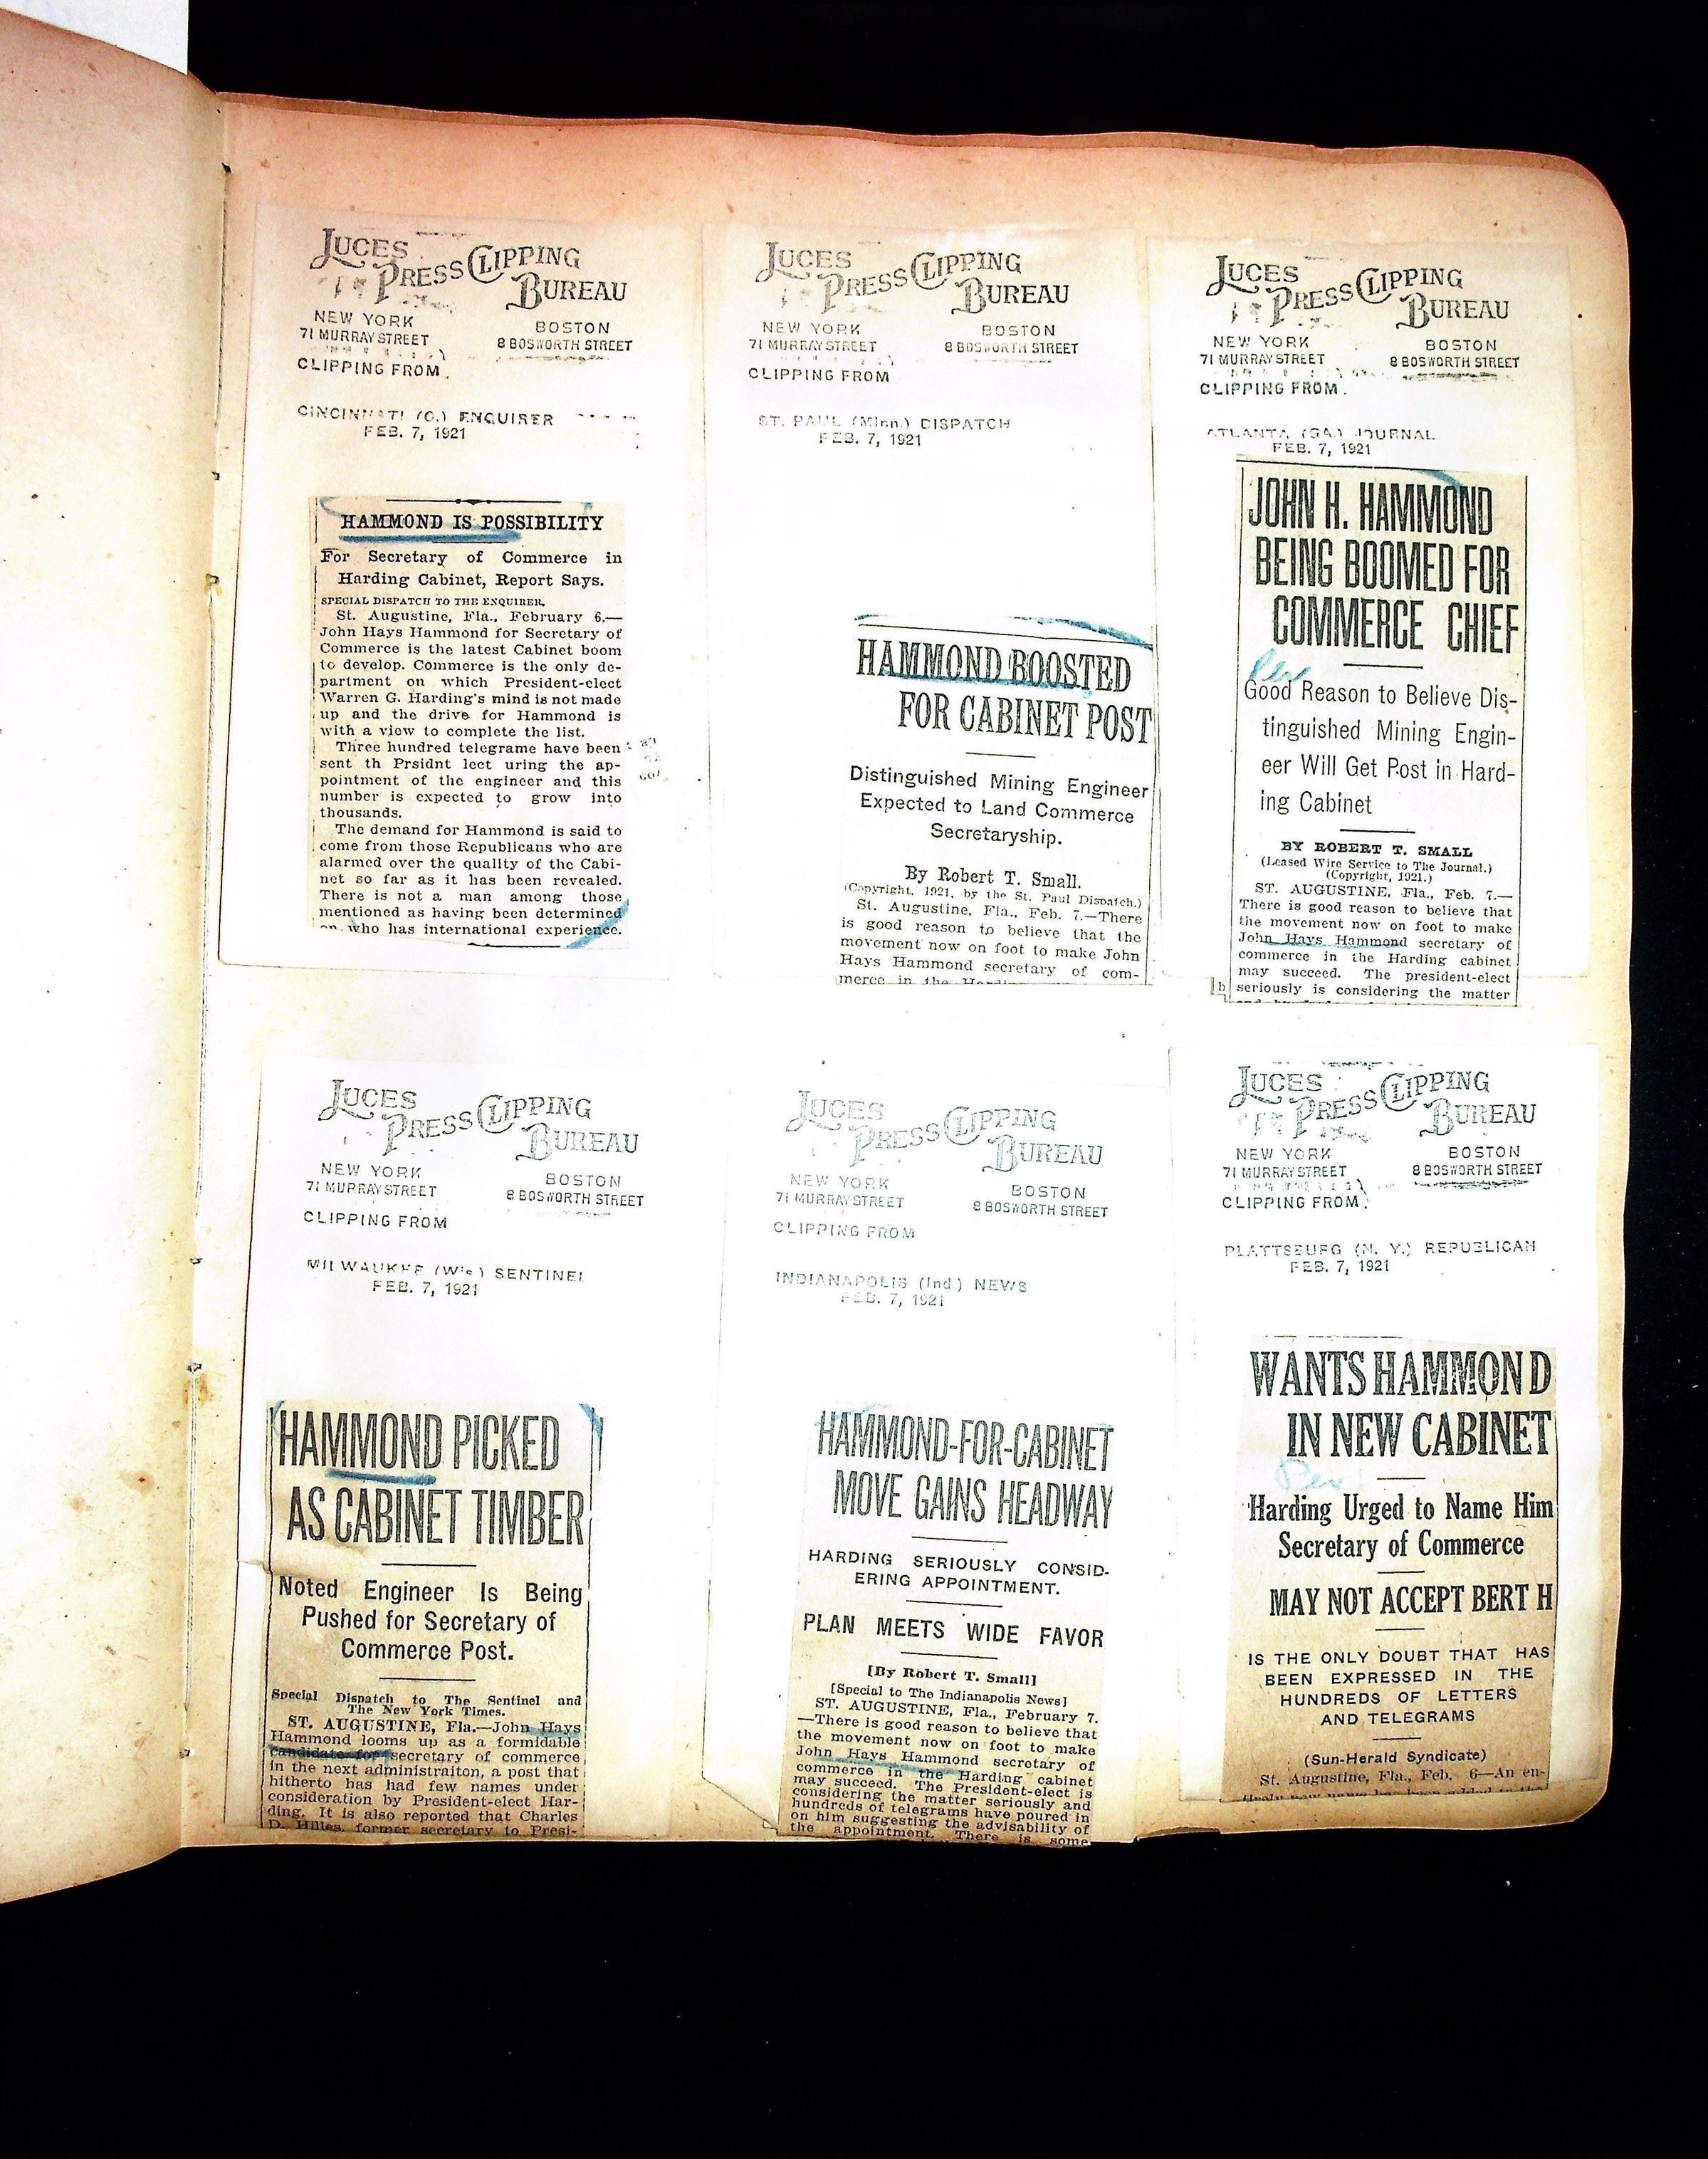 LUCES
PRESS CLIPPING
BUREAU
NEW YORK
71 MURRAY STREET
BOSTON
8 BOSWORTH STREET
CLIPPING FROM
CINCINNATI (O.) ENQUIRER
FEB. 7, 1921
HAMMOND IS POSSIBILITY
For Secretary of Commerce in
Harding Cabinet, Report Says.
SPECIAL DISPATCH TO THE ENQUIRER.
St. Augustine, Fla., February 6.—
John Hays Hammond for Secretary of
Commerce is the latest Cabinet boom
to develop. Commerce is the only de-
partment on which President-elect
Warren G. Harding's mind is not made
up and the drive for Hammond is
with a view to complete the list.
Three hundred telegrame have been
sent th Prsidnt lect uring the ap-
pointment of the engineer and this
number is expected to grow into
thousands.
The demand for Hammond is said to
come from those Republicans who are
alarmed over the quality of the Cabi-
net so far as it has been revealed.
There is not a man among those
mentioned as having been determined
on who has international experience.
LUCES
PRESS CLIPPING
BUREAU
NEW YORK
71 MURRAY STREET
BOSTON
8 BOSWORTH STREET
CLIPPING FROM
ST. PAUL (Minn.) DISPATCH
FEB. 7, 1921
HAMMOND BOOSTED
FOR CABINET POST
Distinguished Mining Engineer
Expected to Land Commerce
Secretaryship.
By Robert T. Small.
(Copyright, 1921, by the St. Paul Dispatch.)
St. Augustine, Fla., Feb. 7.—There
is good reason to believe that the
movement now on foot to make John
Hays Hammond secretary of com-
merce in the
LUCES
PRESS CLIPPING
BUREAU
NEW YORK
71 MURRAY STREET
BOSTON
8 BOSWORTH STREET
CLIPPING FROM
ATLANTA (GA.) JOURNAL
FEB. 7, 1921
JOHN H. HAMMOND
BEING BOOMED FOR
COMMERCE CHIEF
Good Reason to Believe Dis-
tinguished Mining Engin-
eer Will Get Post in Hard-
ing Cabinet
BY ROBERT T. SMALL
(Leased Wire Service to The Journal.)
(Copyright, 1921.)
ST. AUGUSTINE, Fla., Feb. 7.—
There is good reason to believe that
the movement now on foot to make
John Hays Hammond secretary of
commerce in the Harding cabinet
may succeed. The president-elect
seriously is considering the matter
LUCES
PRESS CLIPPING
BUREAU
NEW YORK
71 MURRAY STREET
BOSTON
8 BOSWORTH STREET
CLIPPING FROM
MILWAUKEE (Wis) SENTINEL
FEB. 7, 1921
HAMMOND PICKED
AS CABINET TIMBER
Noted Engineer Is Being
Pushed for Secretary of
Commerce Post.
Special Dispatch to The Sentinel and
The New York Times.
ST. AUGUSTINE, Fla.—John Hays
Hammond looms up as a formidable
candidate for secretary of commerce
in the next administraiton, a post that
hitherto has had few names under
consideration by President-elect Har-
ding. It is also reported that Charles
D. Hilles, former secretary to Presi-
LUCES
PRESS CLIPPING
BUREAU
NEW YORK
71 MURRAY STREET
BOSTON
8 BOSWORTH STREET
CLIPPING FROM
INDIANAPOLIS (Ind) NEWS
FEB. 7, 1921
HAMMOND-FOR-CABINET
MOVE GAINS HEADWAY
HARDING SERIOUSLY CONSID-
ERING APPOINTMENT.
PLAN MEETS WIDE FAVOR
[By Robert T. Small]
[Special to The Indianapolis News]
ST. AUGUSTINE, Fla., February 7.
—There is good reason to believe that
the movement now on foot to make
John Hays Hammond secretary of
commerce in the Harding cabinet
may succeed. The President-elect is
considering the matter seriously and
hundreds of telegrams have poured in
on him suggesting the advisability of
the appointment. There is some
LUCES
PRESS CLIPPING
BUREAU
NEW YORK
71 MURRAY STREET
BOSTON
8 BOSWORTH STREET
CLIPPING FROM
PLATTSBURG (N. Y.) REPUBLICAN
FEB. 7, 1921
WANTS HAMMOND
IN NEW CABINET
Harding Urged to Name Him
Secretary of Commerce
MAY NOT ACCEPT BERT H
IS THE ONLY DOUBT THAT HAS
BEEN EXPRESSED IN THE
HUNDREDS OF LETTERS
AND TELEGRAMS
(Sun-Herald Syndicate)
St. Augustine, Fla., Feb. 6—An en-